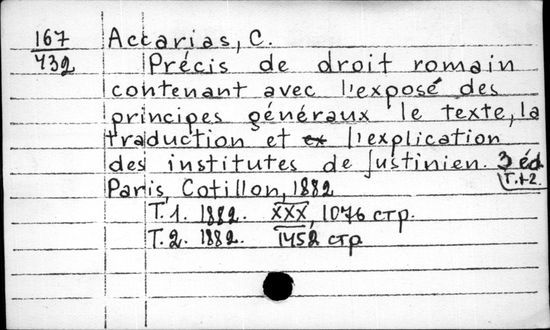 167 Accarias, C.
432 Précis de droit romain
contenant avec l'exposé des
principes généraux le texte, la
traduction et ex l'explication
des institutes de Justinien. 3 éd.
Paris, Cotillon, 1882 T.1-2.
T. 1. 1882. XXX, 1076 стр.
T. 2. 1882. 1452 стр